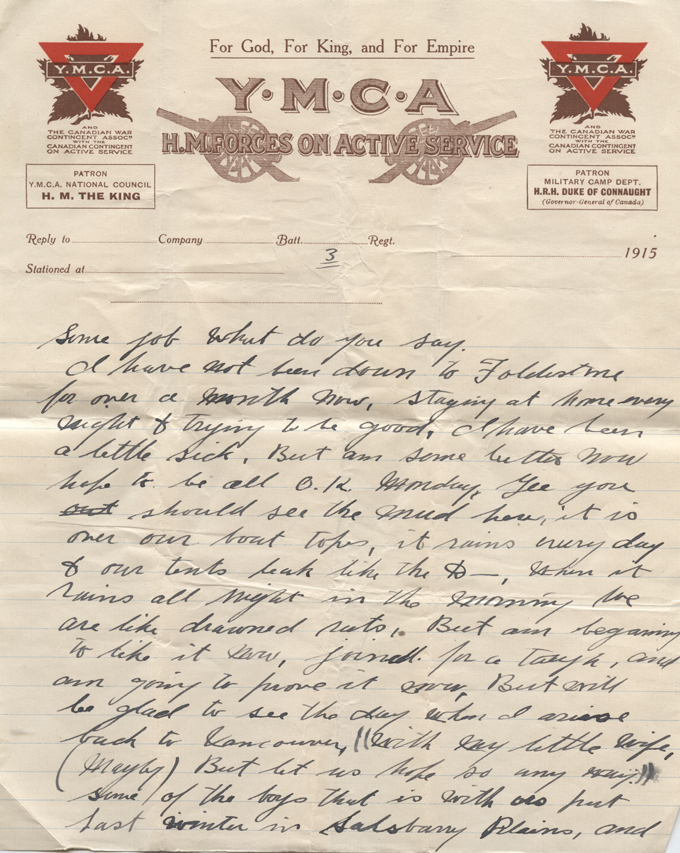 For God, For King, and For Empire
Y·M·C·A
H.M. FORCES ON ACTIVE SERVICE
Y.M.C.A.
AND
THE CANADIAN WAR
CONTINGENT ASSOCN
WITH THE
CANADIAN CONTINGENT
ON ACTIVE SERVICE
PATRON
Y.M.C.A. NATIONAL COUNCIL
H. M. THE KING
Y.M.C.A.
AND
THE CANADIAN WAR
CONTINGENT ASSOCN
WITH THE
CANADIAN CONTINGENT
ON ACTIVE SERVICE
PATRON
MILITARY CAMP DEPT.
H.R.H. DUKE OF CONNAUGHT
(Governor-General of Canada)
Reply to Company Batt. Regt. 1915
3
Stationed at
Some job What do you say.
I have not been down to
for over a Month Now, Staying at home every
Night & trying to be good, I have been
a little sick. But am some better Now
hope to be all O.K. Monday, Gee you
should see the Mud here, it is
over our boat topes, it rains every day
& our tents leak like the D—, When it
rains all Night in the Morning We
are like drawned rats. But am beganing
to like it now, joined for a tough, and
am going to prove it now, But will
be glad to see the day when I arive
back to Vancouver, "(With my little Wife,
(Mayby) But let us hope so any way)"
some of the boys that is with us put
last winter in Salsbarry Plains, and